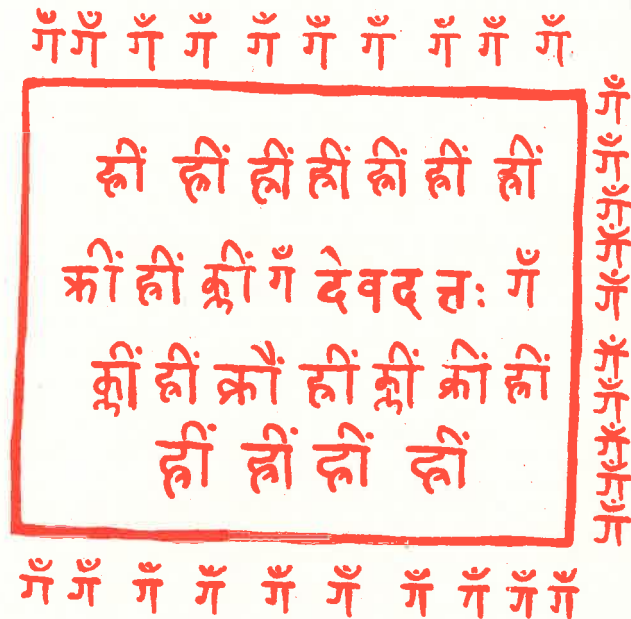 गँ गँ गँ गँ गँ गँ गँ गँ गँ गँ
ह्रीं ह्रीं ह्रीं ह्रीं ह्रीं ह्रीं ह्रीं
क्रीं ह्रीं क्लीं गँ देवदत्तः गँ
क्लीं ह्रीं क्रौं ह्रीं क्लीं क्रीं ह्रीं
ह्रीं ह्रीं ह्रीं ह्रीं
गँ गँ गँ गँ गँ गँ गँ गँ गँ गँ
गँ गँ गँ गँ गँ गँ गँ गँ गँ गँ